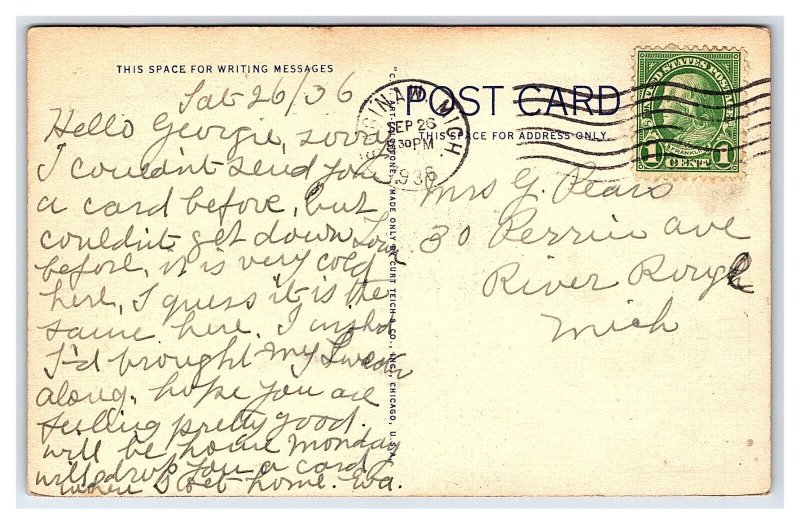 THIS SPACE FOR WRITING MESSAGES
Sat 26/36
Hello Georgie, sorry
I couldn't send you
a card before, but
couldn't get down Town
before, it is very cold
here, I guess it is the
same here. I wished
I'd brought my Sweater
along, hope you are
feeling pretty good.
will be home Monday
will drop you a card
when I get home. Wa.
"C.T. ART-COLORTONE" MADE ONLY BY CURT TEICH & CO., INC., CHICAGO, U.S.A.
SAGINAW, MICH.
SEP 26
30PM
1936
POST CARD
THIS SPACE FOR ADDRESS ONLY
UNITED STATES POSTAGE
FRANKLIN
1 CENT 1
Mrs G. Pears
30 Perrin ave
River Rouge
Mich